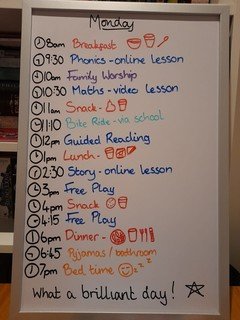 Monday
8am Breakfast
9:30 Phonics - online lesson
10am Family Worship
10:30 Maths - video lesson
11am Snack -
11:10 Bike Ride - via school
12pm Guided Reading
1pm Lunch -
2:30 Story - online lesson
3pm Free Play
4pm Snack
4:15 Free Play
6pm Dinner -
6:45 Pyjamas / bathroom
7pm Bed time zzz
What a brilliant day!